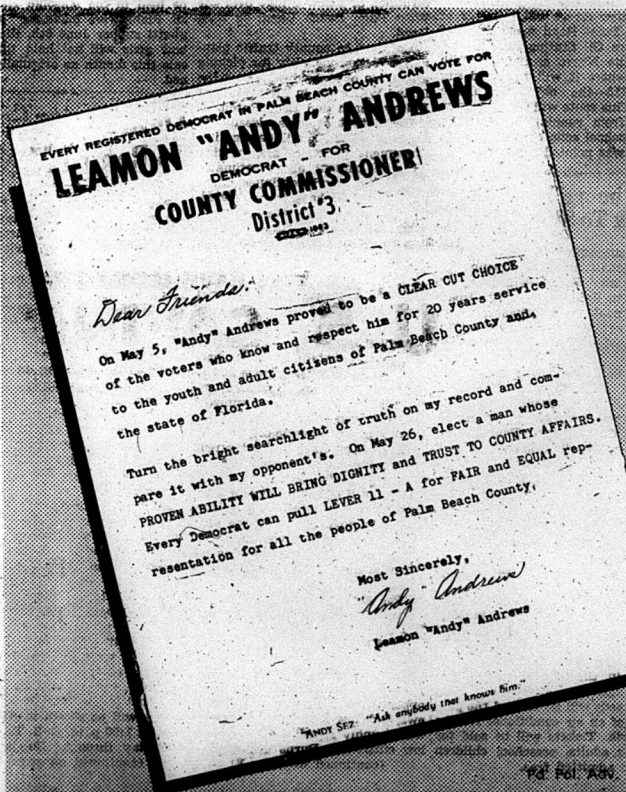 EVERY REGISTERED DEMOCRAT IN PALM BEACH COUNTY CAN VOTE FOR
LEAMON "ANDY" ANDREWS
DEMOCRAT - FOR
COUNTY COMMISSIONER
District #3
Dear Friends:
On May 5, "Andy" Andrews proved to be a CLEAR CUT CHOICE
of the voters who know and respect him for 20 years service
to the youth and adult citizens of Palm Beach County and
the state of Florida.
Turn the bright searchlight of truth on my record and com-
pare it with my opponent's. On May 26, elect a man whose
PROVEN ABILITY WILL BRING DIGNITY and TRUST TO COUNTY AFFAIRS.
Every Democrat can pull LEVER 11 - A for FAIR and EQUAL rep-
resentation for all the people of Palm Beach County.
Most Sincerely,
"Andy" Andrews
Leamon "Andy" Andrews
ANDY SEZ: "Ask anybody that knows him."
Pd. Pol. Adv.